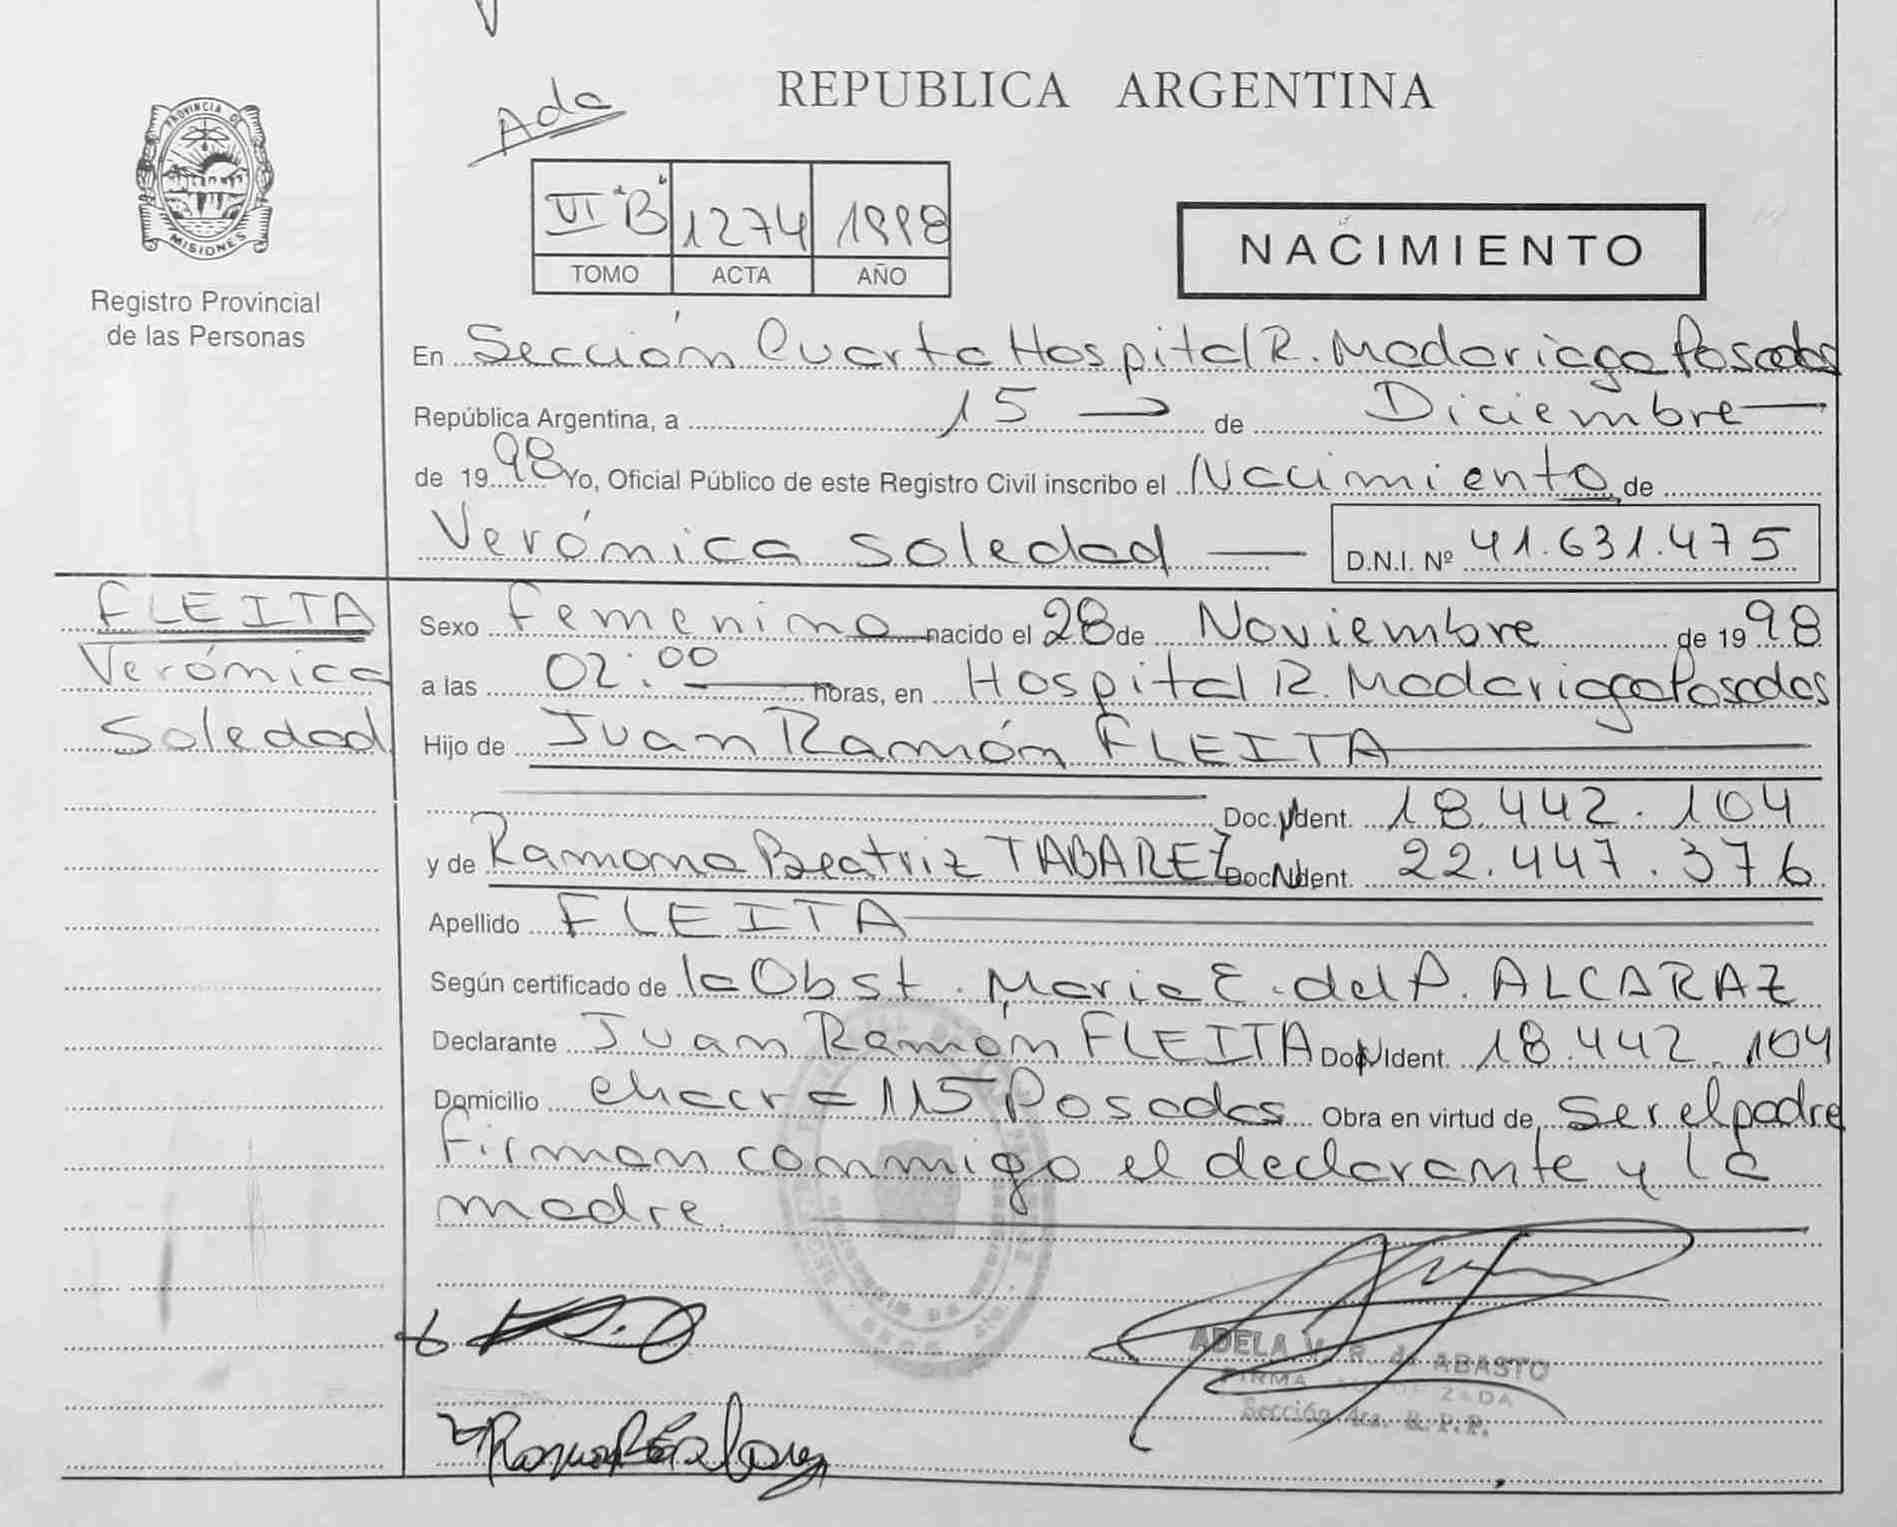 Ada
REPUBLICA ARGENTINA
PROVINCIA DE
MISIONES
Registro Provincial
de las Personas
VI "B" 1274 1998
TOMO ACTA AÑO
NACIMIENTO
En Sección Cuarta Hospital R. Madariaga Posadas
República Argentina, a 15 de Diciembre
de 1998 Yo, Oficial Público de este Registro Civil inscribo el Nacimiento de
Verónica Soledad D.N.I. Nº 41.631.475
FLEITA
Verónica
Soledad
Sexo Femenino nacido el 28 de Noviembre de 1998
a las 02:00 horas, en Hospital R. Madariaga Posadas
Hijo de Juan Ramón FLEITA
Doc. Ident. 18.442.104
y de Ramona Beatriz TABAREZ Doc. N Ident. 22.447.376
Apellido FLEITA
Según certificado de la Obst. Maria E. del P. ALCARAZ
Declarante Juan Ramón FLEITA Doc. N Ident. 18.442.104
Domicilio chacra 115 Posadas Obra en virtud de ser el padre
Firman conmigo el declarante y la
madre.
ADELA V. R. de ABASTO
FIRMA AUTORIZADA
Sección 4ta. R.P.P.